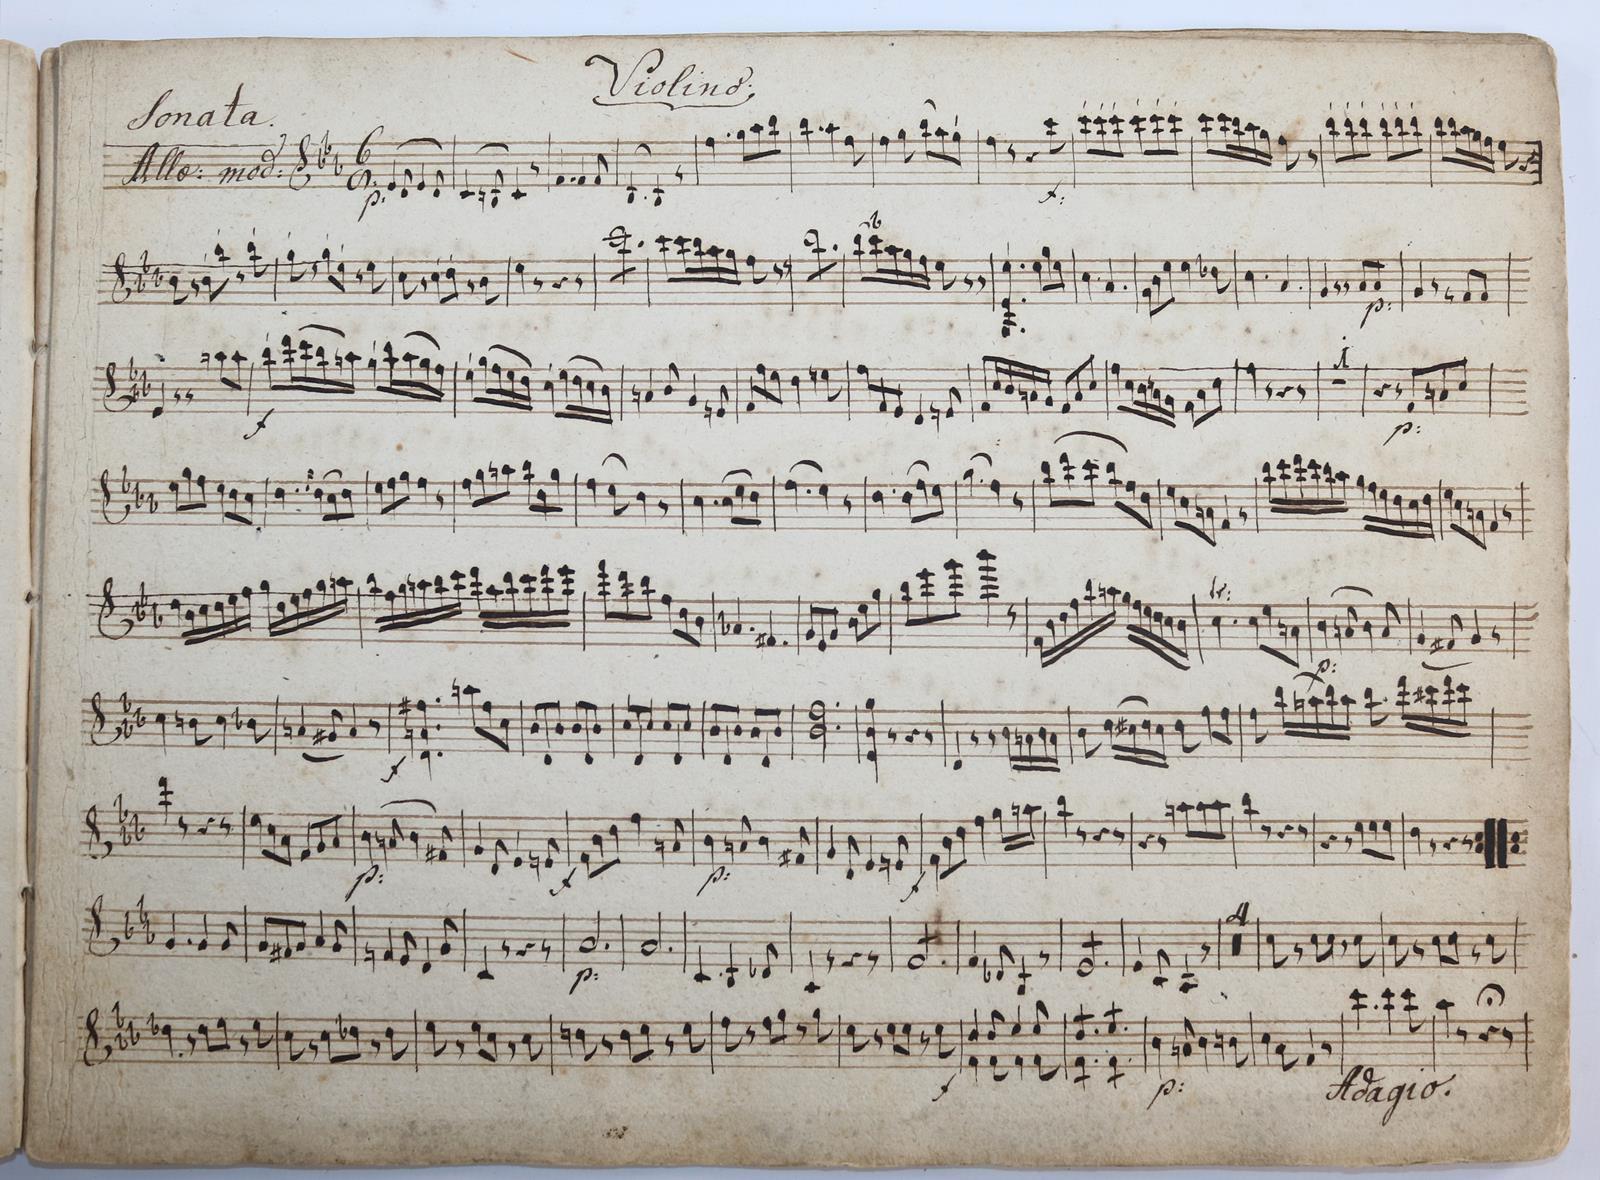 Violino.
Sonata.
Allo: mod:
6
8
p:
f:
p:
f
1
p:
tr:
p:
f
p:
f
p:
f
4
p:
f
p:
Adagio.